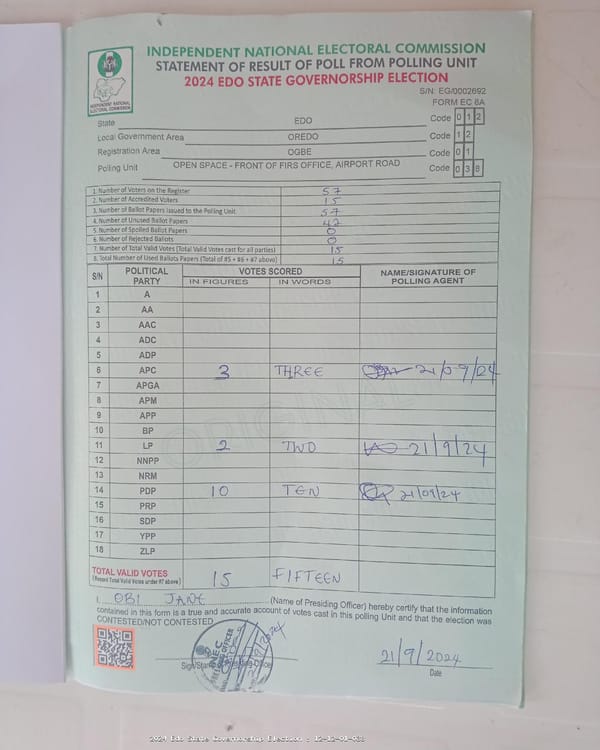 INDEPENDENT NATIONAL ELECTORAL COMMISSION
STATEMENT OF RESULT OF POLL FROM POLLING UNIT
2024 EDO STATE GOVERNORSHIP ELECTION
S/N: EG/0002692
FORM EC 8A
INEC
INDEPENDENT NATIONAL ELECTORAL COMMISSION
State EDO Code 0 1 2
Local Government Area OREDO Code 1 2
Registration Area OGBE Code 0 1
Polling Unit OPEN SPACE - FRONT OF FIRS OFFICE, AIRPORT ROAD Code 0 3 8
1. Number of Voters on the Register 57
2. Number of Accredited Voters 15
3. Number of Ballot Papers Issued to the Polling Unit 57
4. Number of Unused Ballot Papers 42
5. Number of Spoiled Ballot Papers 0
6. Number of Rejected Ballots 0
7. Number of Total Valid Votes (Total Valid Votes cast for all parties) 15
8. Total Number of Used Ballots Papers (Total of #5 + #6 + #7 above) 15
S/N POLITICAL PARTY VOTES SCORED NAME/SIGNATURE OF POLLING AGENT
IN FIGURES IN WORDS
1 A
2 AA
3 AAC
4 ADC
5 ADP
6 APC 3 THREE 21/09/24
7 APGA
8 APM
9 APP
10 BP
11 LP 2 TWO 21/9/24
12 NNPP
13 NRM
14 PDP 10 TEN 21/09/24
15 PRP
16 SDP
17 YPP
18 ZLP
ORIGINAL
TOTAL VALID VOTES 15 FIFTEEN
(Record Total Valid Votes under #7 above)
I, OBI JANE (Name of Presiding Officer) hereby certify that the information
contained in this form is a true and accurate account of votes cast in this polling Unit and that the election was
CONTESTED/NOT CONTESTED
INEC
21/9/2024
21/9/2024
Date
2024 Edo State Governorship Election : 12-12-01-038